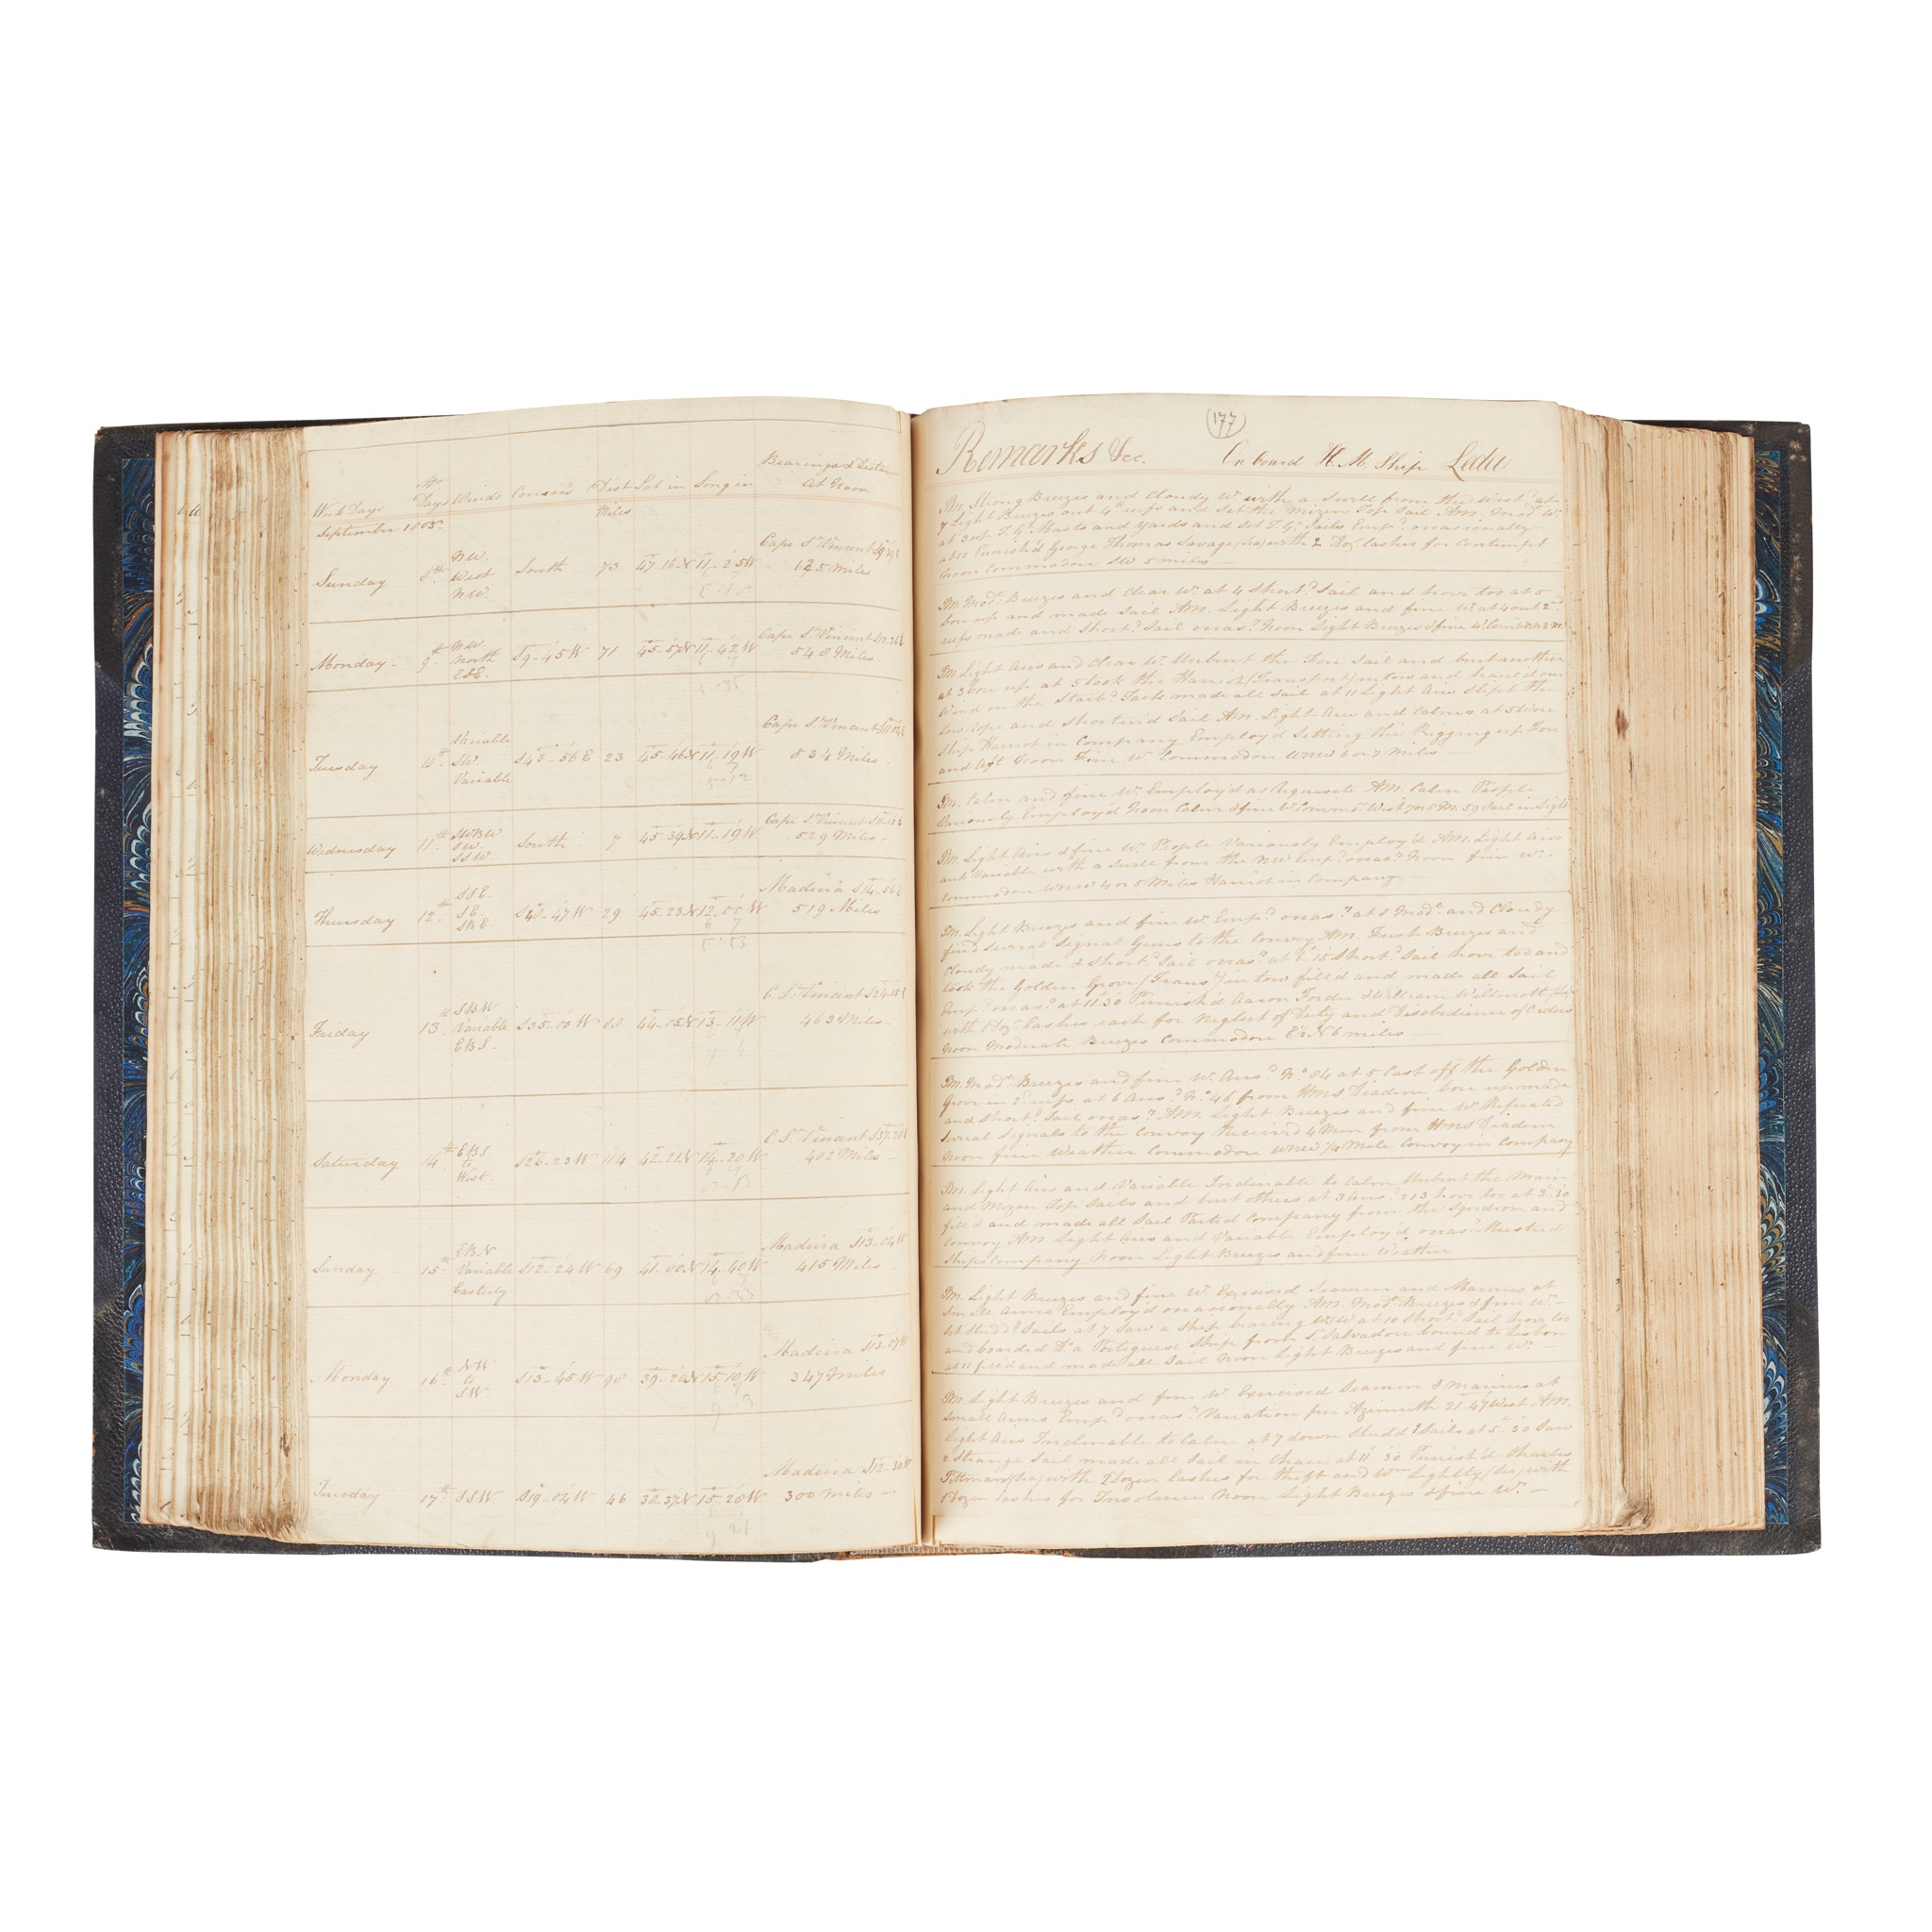 Week Days No Days Winds Courses Dist Miles Lat in Long in Bearings & Distance At Noon
September 1805
Sunday 8th NW. West NW. South 73 47-16 N 11-25 W Cape St Vincent 625 Miles
Monday - 9th NW. North ESE. S9-45 W 71 45-57 N 11-42 W Cape St Vincent 548 Miles
Tuesday 10th Variable SW. Variable S43-56 E 23 45-46 N 11-19 W Cape St Vincent 534 Miles
Wednesday 11th SWBW SW. SSW. South 7 45-39 N 11-19 W Cape St Vincent 529 Miles
Thursday 12th SSE. SE. SBE. S48-47 W 29 45-23 N 12-00 W Madeira S14-56 519 Miles
Friday 13th SBW Variable EBS. S35-00 W 88 44-05 N 13-11 W C. St Vincent 463 Miles
Saturday 14th EBS. to West. S26-23 W 114 42-21 N 14-20 W C. St Vincent 402 Miles
Sunday 15th EBN Variable Easterly S12-24 W 69 41-00 N 14-40 W Madeira S13-04 W 415 Miles
Monday 16th NW to SW. S13-45 W 98 39-20 N 15-10 W Madeira S13-07 W 347 Miles
Tuesday 17th SSW S19-04 W 46 38-37 N 15-28 W Madeira S12-30 W 300 Miles
177
Remarks &c. On board H. M. Ship Leda
PM. Strong Breezes and Cloudy Wr. with a Swell from the Westd. at
7 Light Breezes out 4th reefs and Set the Mizen Top Sail AM. Modte. Wr.
at 3 up T. Gt. Masts and Yards and set T. Gt. Sails Empd. occasionally
at 10 Punish'd George Thomas Savage (Sea) with 2 Dozn. lashes for Contempt
Noon Commodore SW 5 miles
PM. Modte. Breezes and Clear Wr. at 4 Shortd. Sail and hove too at 5
bore up and made Sail AM. Light Breezes and fine Wr. at 4 out 2nd
reefs made and Shortd. Sail occasy. Noon Light Breezes & fine Wr.
PM. Light Airs and Clear Wr. Unbent the Fore Sail and bent another
at 3 bore up at 5 took the Harriot (Transport) in tow and hauld our
Wind on the Starbd. Tack made all Sail at 11 Light Airs Slipt the
tow Rope and Shorten'd Sail AM. Light Airs and Calms at 5 Wore
Ship Harriot in Company Employ'd Setting the Rigging up Fore
and Aft Noon Fine Wr. Commodore WNW 6 or 7 Miles
PM. Calm and fine Wr. Employ'd as Requisite AM. Calm People
Variously Employ'd Noon Calm & fine Wr. 59 Sail in Sight
PM. Light Airs & fine Wr. People Variously Employ'd AM. Light Airs
and Variable with a Swell from the NW Empd. occasy. Noon fine Wr.
Commodore WNW 4 or 5 Miles Harriot in Company
PM. Light Breezes and fine Wr. Empd. occasy. at 8 Modte. and Cloudy
fired several Signal Guns to the Convoy AM. Fresh Breezes and
Cloudy made & Shortd. Sail occasy. at 15 Shortd. Sail hove too and
took the Golden Grove (Transt.) in tow filld and made all Sail
Empd. occasy. at 11.30 Punish'd Aaron Forder & William Willmott (Sea)
with 1 Dozn. lashes each for Neglect of Duty and Disobedience of Orders
Noon Moderate Breezes Commodore EbN 6 miles
PM. Modte. Breezes and fine Wr. Ansd. No. 84 at 5 Cast off the Golden
Grove in 2d. reefs at 6 Ansd. No. 46 from HMS Diadem bore up made
and Shortd. Sail occasy. AM. Light Breezes and fine Wr. Repeated
several Signals to the Convoy Received 4 Men from HMS Diadem
Noon fine Weather Commodore WNW 1/4 Mile Convoy in Company
PM. Light Airs and Variable Inclinable to Calm Unbent the Main
and Mizen Top Sails and bent others at 3 Ansd. 213 hove too at 3.30
fill'd and made all Sail Parted Company from the Squdron and
Convoy AM. Light Airs and Variable Employ'd occasy. Musterd
Ships Company Noon Light Breezes and fine Weather
PM. Light Breezes and fine Wr. Exercised Seamen and Marines at
Small Arms Employ'd occasionally AM. Modte. Breezes & fine Wr.
Set Studdg. Sails at 7 Saw a Ship bearing WbW at 10 Shortd. Sail hove too
and boarded Do. a Portuguese Ship from St. Salvadore bound to Lisbon
at 11 filld and made all Sail Noon Light Breezes and fine Wr. —
PM. Light Breezes and fine Wr. Exercised Seamen & Marines at
Small Arms Empd. occasy. Variation per Azimuth 21.47 West AM.
Light Airs Inclinable to Calm at 7 down Studdg. Sails at 5.30 Saw
a Strange Sail made all Sail in Chace at 11.30 Punish'd Charles
Pittman (Sea) with 2 Dozen lashes for theft and Wm. Lightly (Sea) with
1 Dozen lashes for Insolence Noon Light Breezes & fine Wr. —